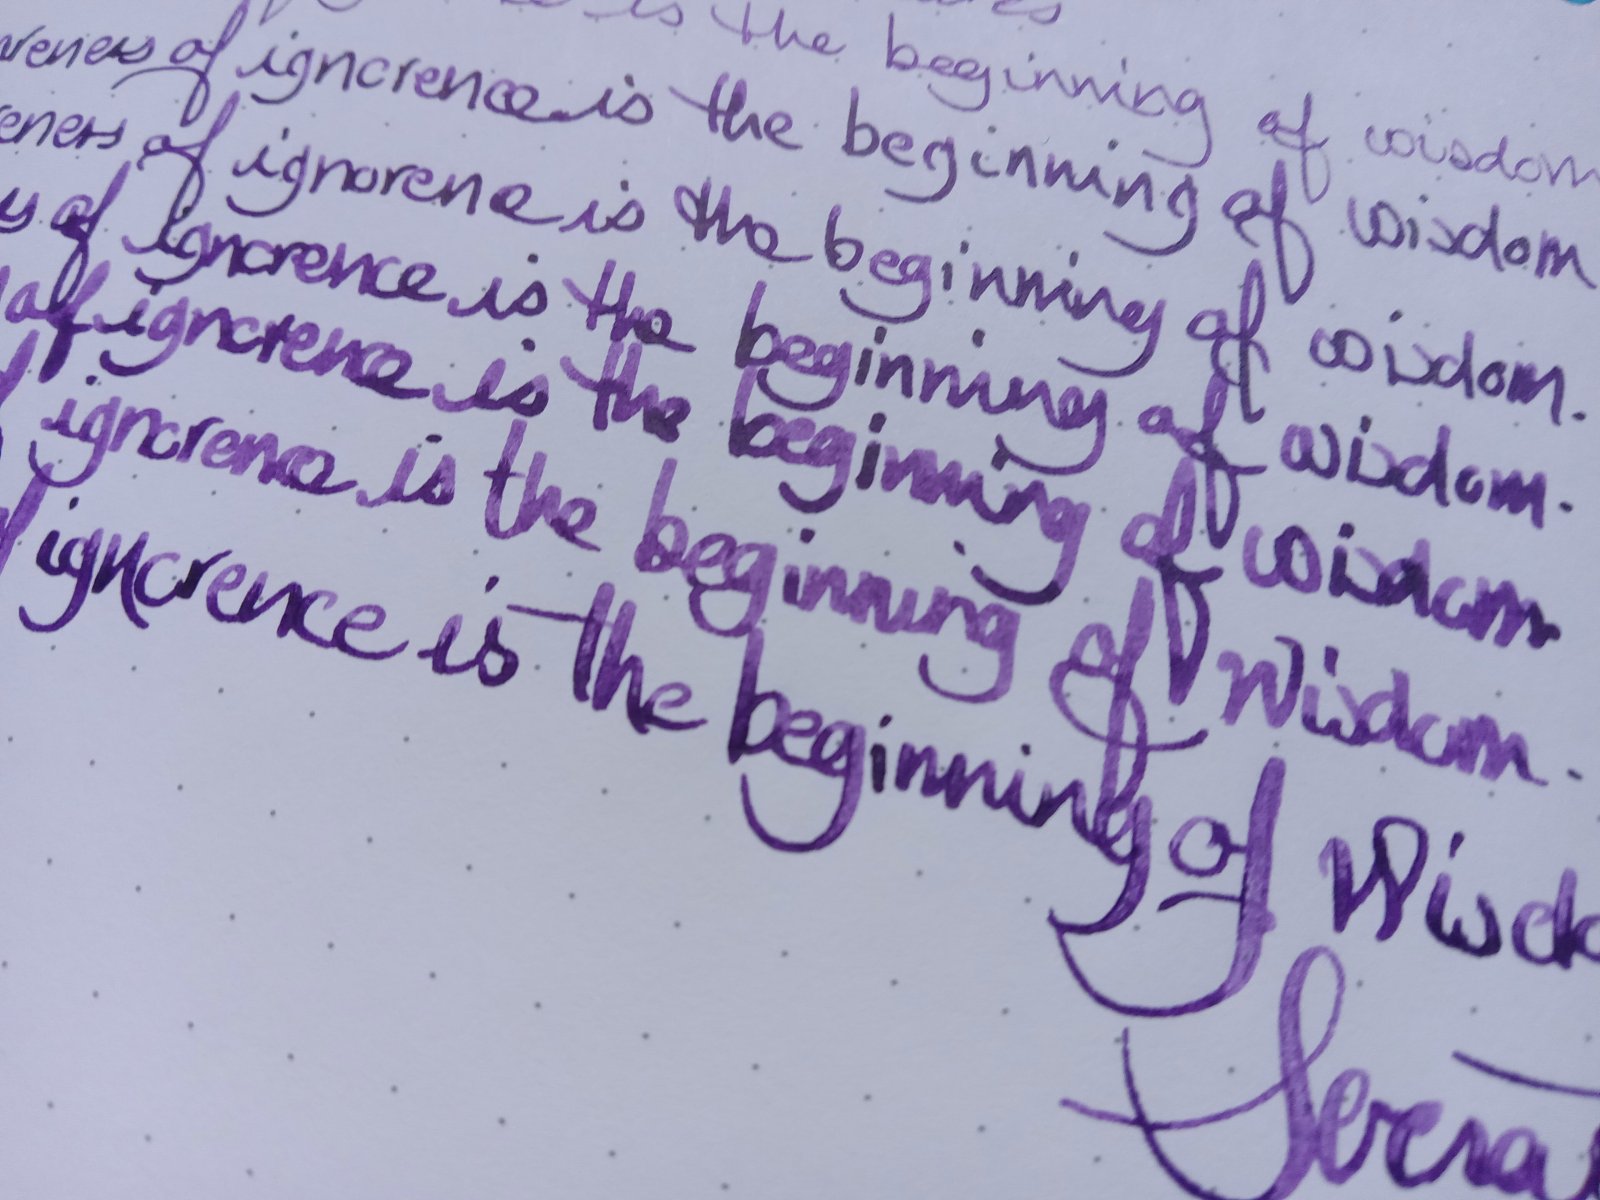 is the beginning of wisdom
reness of ignorence is the beginning of wisdom
eness of ignorence is the beginning of wisdom.
s of ignorence is the beginning of wisdom.
of ignorence is the beginning of wisdom
ignorence is the beginning of Wisdom.
ignorence is the beginning of Wisdo